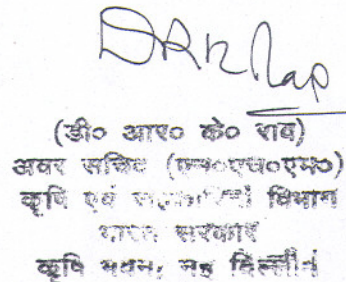 DRK Rao
(डी० आर० के० राव)
अवर सचिव (एन०एच०एम०)
कृषि एवं सहकारिता विभाग
भारत सरकार
कृषि भवन, नई दिल्ली